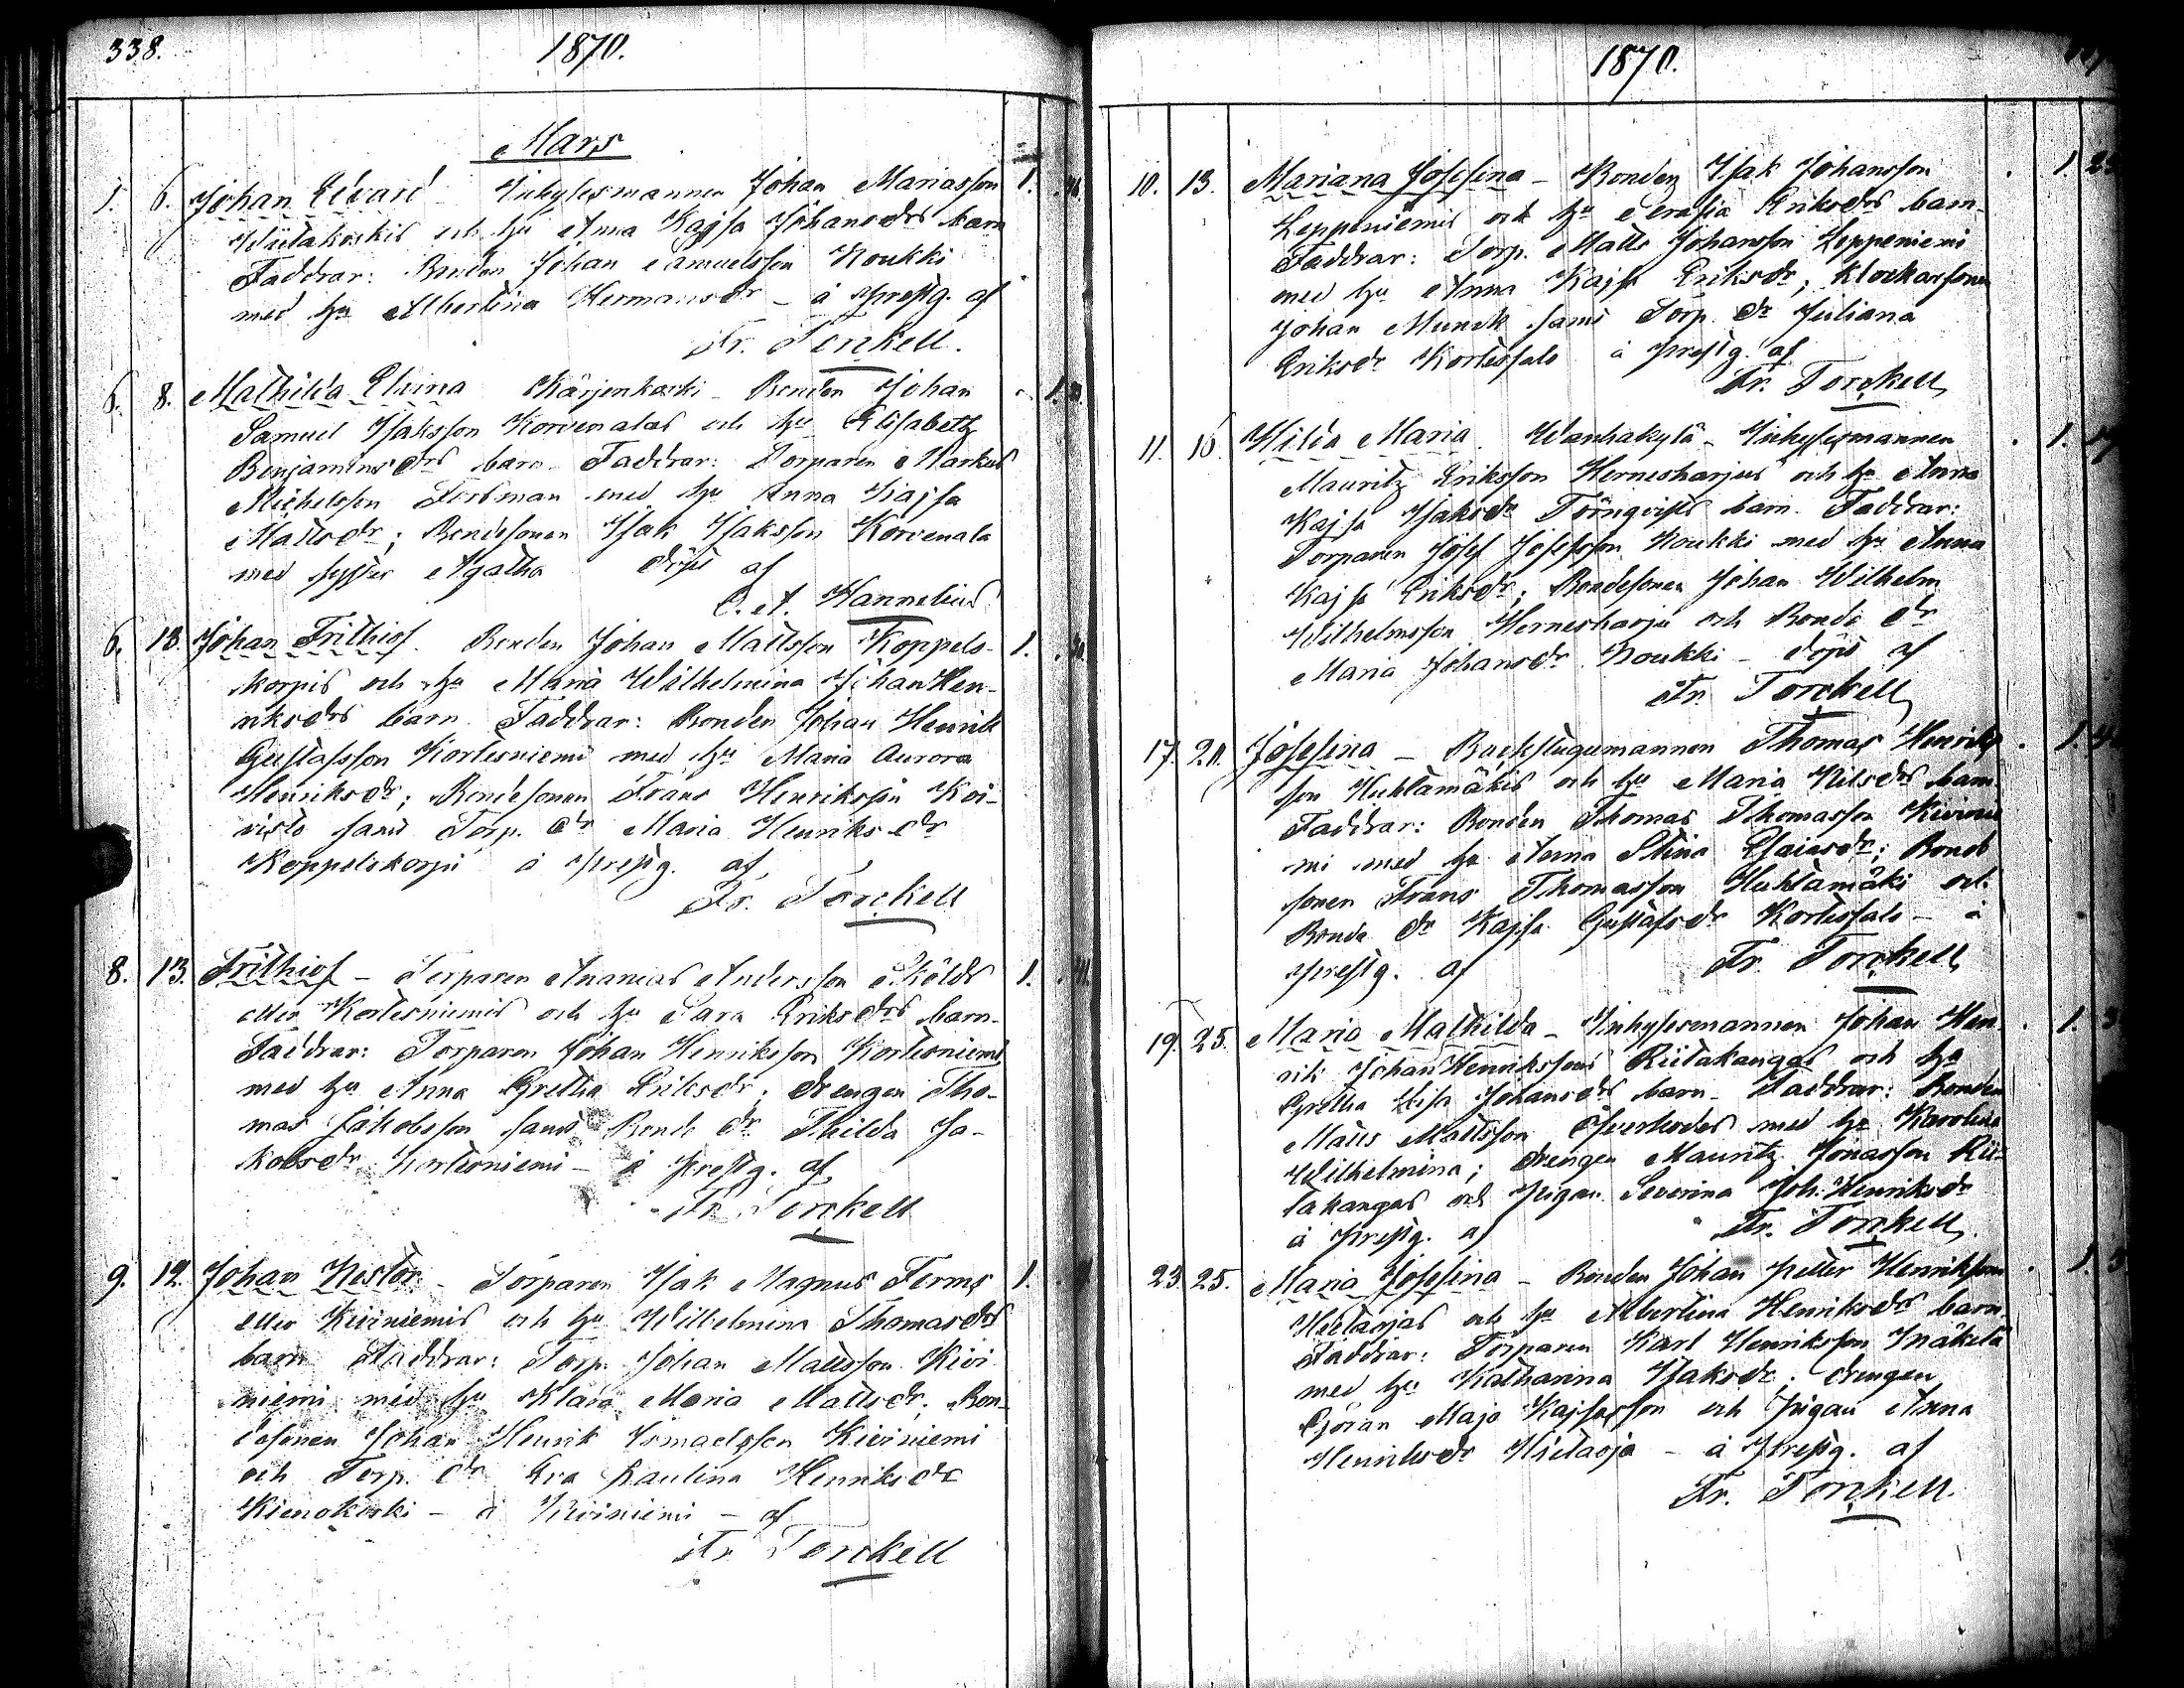 338.
1870.
Mars
1. 6. Johan Edvard Inhysesmannen Johan Mariasson 1.
Wiitakoskis och hu Anna Kajsa Johansdrs barn
Faddrar: Bonden Johan Samuelsson Koukki
med hu Albertina Hermansdr – å prestg. af
Fr. Torckell.
6. 8. Mathilda Elvina Kärjenkoski – Bonden Johan 1.
Samuel Isaksson Korvenalas och hu Elisabeth
Benjaminsdrs barn. Faddrar: Torparen Markus
Michelsson Forsman med hu Anna Kajsa
Mattsdr; Bondesonen Isak Isaksson Korvenala
med syster Agatha döpt af
C. A. Hannelius
6. 13. Johan Frithiof. Bonden Johan Mattsson Koppels- 1.
korpis och hu Maria Wilhelmina Johan Hen-
riksdrs barn. Faddrar: Bonden Johan Henrik
Gustafsson Kortesniemi med hu Maria Aurora
Henriksdr; Bondesonen Frans Henriksson Koi-
visto samt Torp. dr Maria Henriksdr
Koppelskorpi å prestg. af
Fr. Torckell
8. 13. Frithiof – Torparen Ananias Andersson Skölds 1.
eller Kortesniemis och hu Sara Eriksdrs barn.
Faddrar: Torparen Johan Henriksson Kortesniemi
med hu Anna Gretha Eriksdr; drengen Tho-
mas Jakobsson samt Bonde dr Thilda Ja-
kobsdr Kortesniemi – å prestg. af
Fr. Torckell
9. 12. Johan Nestor – Torparen Isak Magnus Forms 1.
eller Kiviniemis och hu Wilhelmina Thomasdrs
barn Faddrar: Torp. Johan Mattsson Kivi
niemi med hu Klara Maria Mattsdr, Bon-
desonen Johan Henrik Ismaelsson Kiviniemi
och Torp. dr Eva Paulina Henriksdr
Kienokoski – å Kiviniemi – af
Fr. Torckell
1870.
10. 13. Mariana Josefina – Bonden Isak Johansson 1.
Leppeniemis och hu Serafia Eriksdrs barn
Faddrar: Torp. Matts Johansson Leppeniemi
med hu Anna Kajsa Eriksdr; klockarsonen
Johan Munck samt Torp. dr Juliana
Eriksdr Kortessalo å prestg. af
Fr. Torckell
11. 16. Hilda Maria. Wanhakylä – Inhysesmannen 1.
Mauritz Eriksson Hernesharjus och hu Anna
Kajsa Isaksdr Törnqvists barn. Faddrar:
Torparen Josef Josefsson Koukki med hu Anna
Kajsa Eriksdr; Bondesonen Johan Wilhelm
Wilhelmsson Hernesharju och Bonde dr
Maria Johansdr Koukki – döpt af
Fr. Torckell
17. 20. Josefina – Backstugumannen Thomas Henriks 1.
son Huhtamäkis och hu Maria Nilsdrs barn
Faddrar: Bonden Thomas Thomasson Kivinie
mi med hu Anna Stina Esaiasdr; Bond
sonen Frans Thomasson Huhtamäki och
Bonde dr Kajsa Gustafsdr Kortessalo – å
prestg. af Fr. Torckell
19. 25. Maria Mathilda – Inhysesmannen Johan Hen 1.
rik Johan Henrikssons Riitakangas och hu
Gretha Lisa Johansdrs barn – Faddrar: Bonden
Matts Mattsson med hu Karolina
Wilhelmina; drengen Mauritz Jonasson Rii-
takangas och pigan Severina Joh: Henriksdr
å prestg. af Fr. Torckell
23. 25. Maria Josefina – Bonden Johan Petter Henriksson 1.
Hietaojas och hu Albertina Henriksdrs barn
Faddrar: Torparen Karl Henriksson Mäkelä
med hu Katharina Isaksdr. drengen
Göran Maja Kajsasson och Pigan Anna
Henriksdr Hietaoja – å prestg. af
Fr. Torckell.